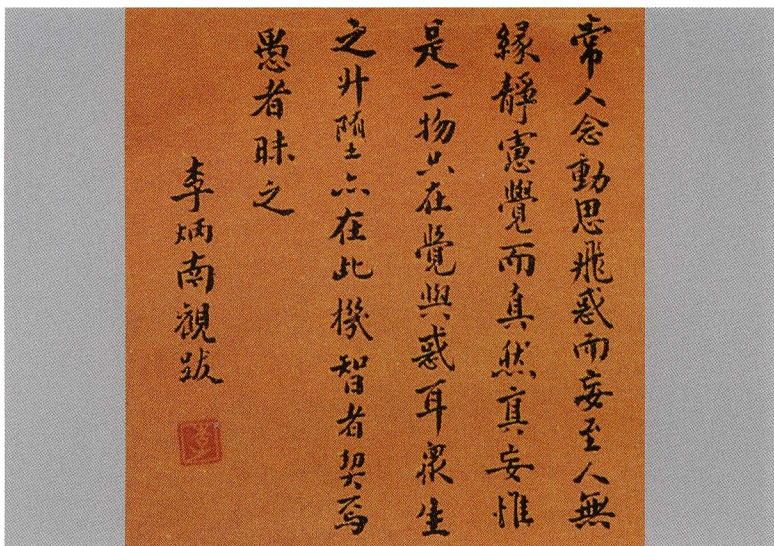 常人念動思飛惑而妄至人無
緣靜慮覺而真然真妄惟
是二物只在覺與惑耳衆生
之升墮亦在此機智者契焉
愚者昧之
李炳南觀跋